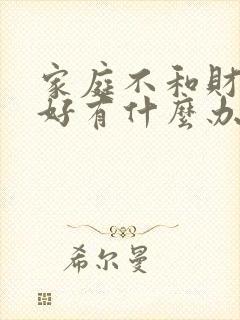 家庭不和財
好有什麼办
希尔曼